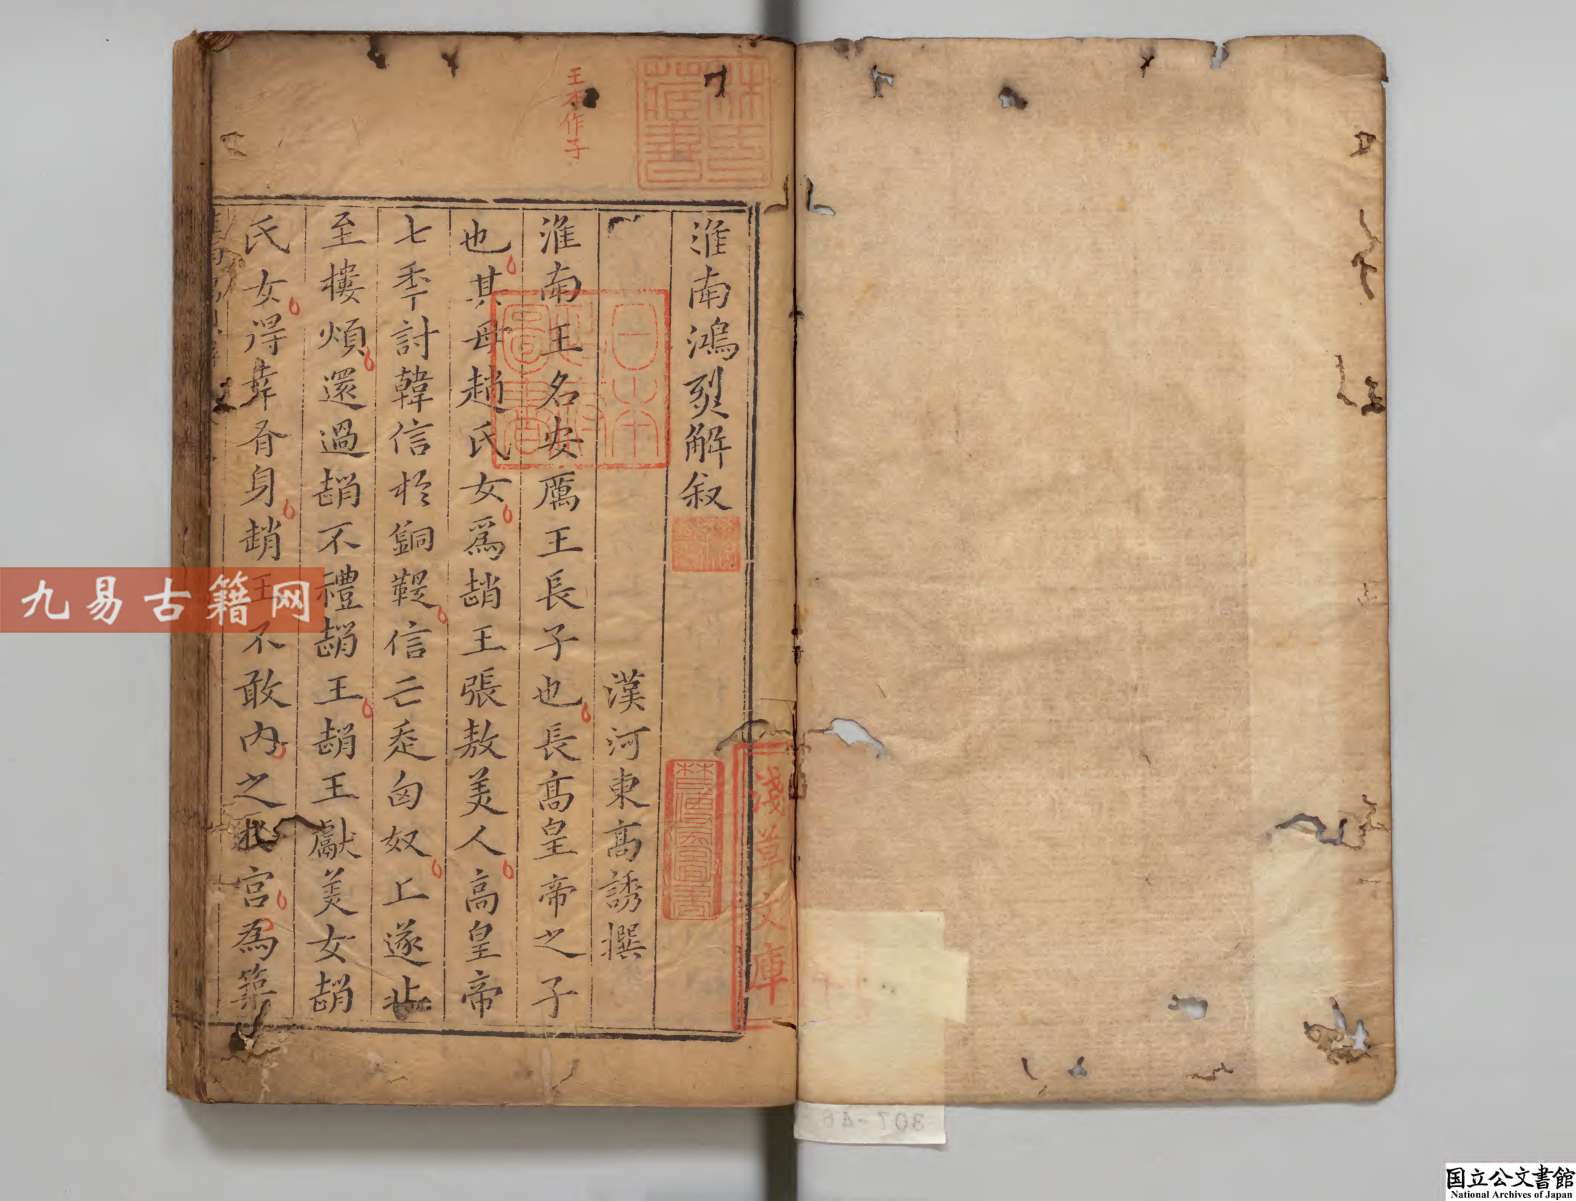 淮南鴻烈解叙
漢河東高誘撰
淮南王名安厲王長子也長高皇帝之子
也其母趙氏女爲趙王張敖美人高皇帝
七秊討韓信於銅鞮信亡走匈奴上遂北
至樓煩還過趙不禮趙王趙王獻美女趙
氏女得幸有身趙王不敢内之於宮爲築
王本作子
林氏藏書
日本政府圖書
淺草文庫
九易古籍网
307-46
国立公文書館
National Archives of Japan